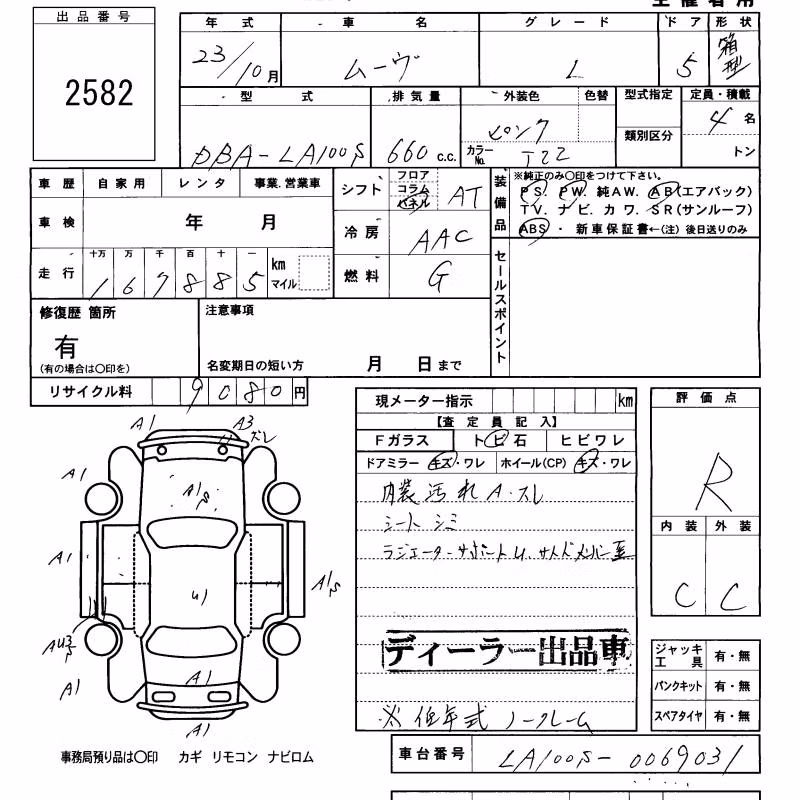 出品番号
2582
年式 車名 グレード ドア 形状
23/10月 ムーヴ L 5 箱型
型式 排気量 外装色 色替 型式指定 定員・積載
DBA-LA100S 660 c.c. ピンク 4名
カラーNo. T22 類別区分 トン
車歴 自家用 レンタ 事業.営業車
車検 年 月
走行 十万 万 千 百 十 一
1 6 7 8 8 5 km マイル
シフト フロア コラム パネル AT
冷房 AAC
燃料 G
装備品
※純正のみ○印をつけて下さい。
PS. PW 純AW. AB(エアバック)
TV. ナビ. カワ. SR(サンルーフ)
ABS ・ 新車保証書←(注) 後日送りのみ
セールスポイント
修復歴 箇所
有
(有の場合は○印を)
注意事項
名変期日の短い方 月 日まで
リサイクル料 9 0 8 0 円
現メーター指示 km
【査定員記入】
Fガラス トビ石 ヒビワレ
ドアミラー キズ・ワレ ホイール(CP) キズ・ワレ
内装汚れ A・スレ
シート シミ
ラジエーターサポートU, サイドメンバー歪
ディーラー出品車
※ 低年式 ノークレーム
評価点
R
内装 外装
C C
ジャッキ工具 有・無
パンクキット 有・無
スペアタイヤ 有・無
車台番号 LA100S-0069031
A1
A3
U ズレ
A1
A1S
A1
U1
A1S
AU3S
A1
A1
A1
事務局預り品は○印 カギ リモコン ナビロム